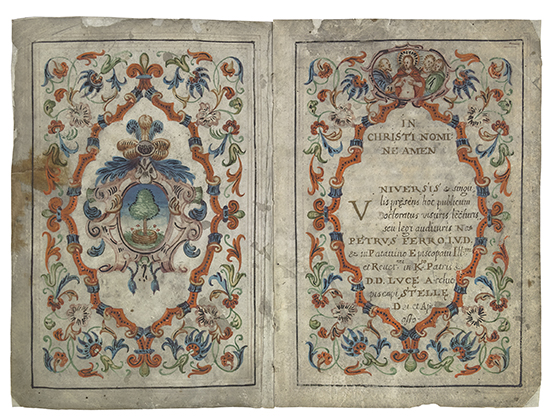 IN
CHRISTI NOMI
NE AMEN
VNIVERSIS & singu
lis præsens hoc publicum
Doctoratus visuris lecturis,
seu legi audituris Nos
PETRVS FERRO I.V.D.
Patauino Episcopatu Ill.mi
et Reuer.mi in Patris
D.D. LVCÆ Archie
piscopi STELLE
D